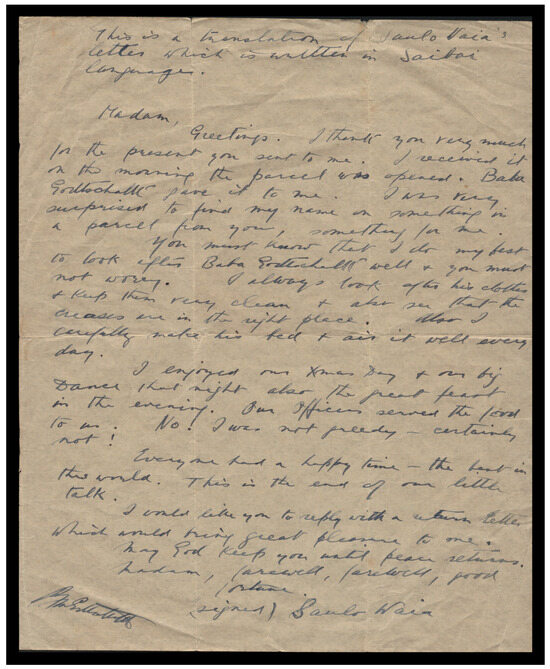 This is a translation of Saulo Waia's
letter which is written in Saibai
languages.
Madam,
Greetings. I thank you very much
for the present you sent to me. I received it
on the morning the parcel was opened. Baba
Godtschalk gave it to me. I was very
surprised to find my name on something in
a parcel from you, something for me.
You must know that I do my best
to look after Baba Godtschalk well & you must
not worry. I always look after his clothes
& keep them very clean & also see that the
creases are in the right place. Also I
carefully make his bed & air it well every
day.
I enjoyed our Xmas Day & our big
Dance that night also the great feast
in the evening. Our Officers served the food
to us. No! I was not greedy – certainly
not!
Everyone had a happy time – the best in
the world. This is the end of our little
talk.
I would like you to reply with a return letter
which would bring great pleasure to me.
May God keep you until peace returns.
Madam, farewell, farewell, good
fortune.
(signed) Saulo Waia